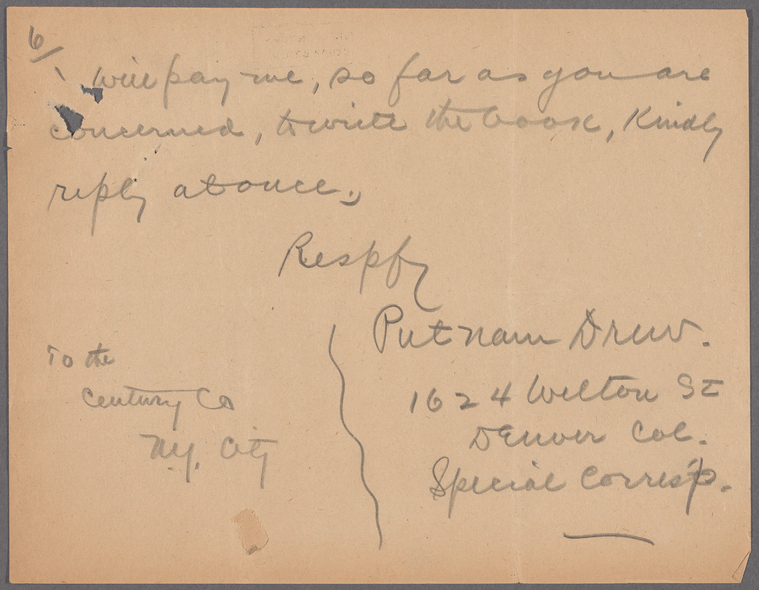 6/
will pay me, so far as you are
concerned, to write the book, Kindly
reply at once.,
Respfy
Putnam Drew.
1624 Welton St
Denver Col.
Special Corresp.
To the
Century Co
N.Y. City